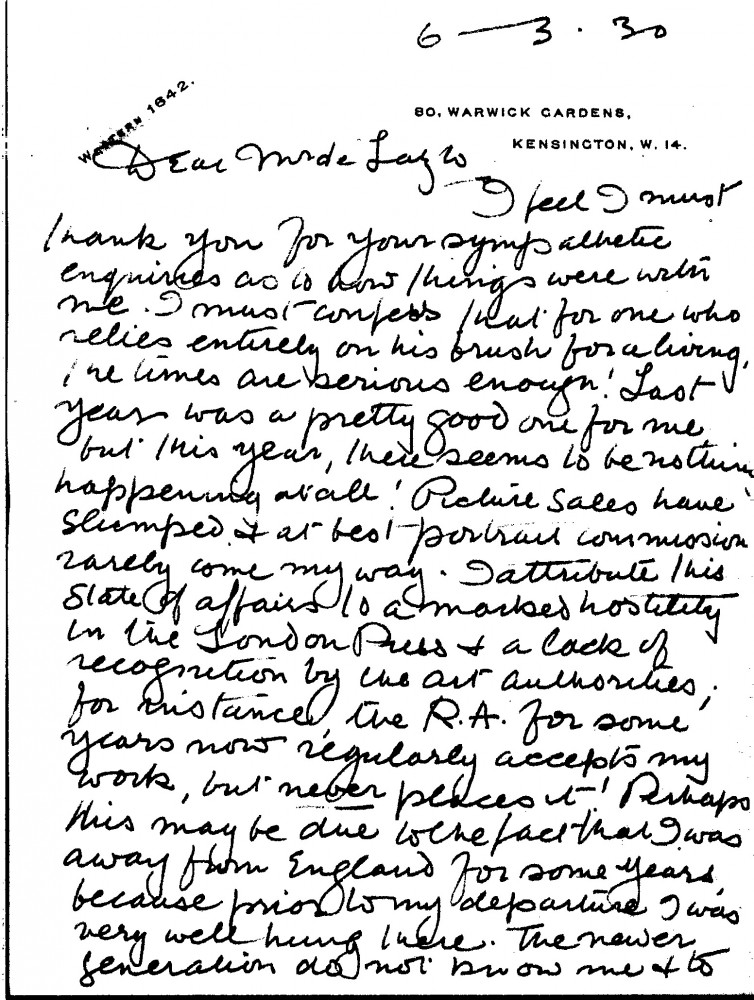 6 — 3 . 30
WESTERN 1642.
80, WARWICK GARDENS,
KENSINGTON, W. 14.
Dear Mr de Laszlo
I feel I must
thank you for your sympathetic
enquiries as to how things were with
me. I must confess that for one who
relies entirely on his brush for a living,
the times are serious enough! Last
year was a pretty good one for me,
but this year, there seems to be nothing
happening at all! Picture sales have
slumped & at best portrait commission
rarely come my way. I attribute this
state of affairs to a marked hostility
in the London Press & a lack of
recognition by the art authorities;
for instance, the R.A. for some
years now regularly accepts my
work, but never places it! Perhaps
this may be due to the fact that I was
away from England for some years,
because prior to my departure I was
very well hung there. The newer
generation do not know me & to